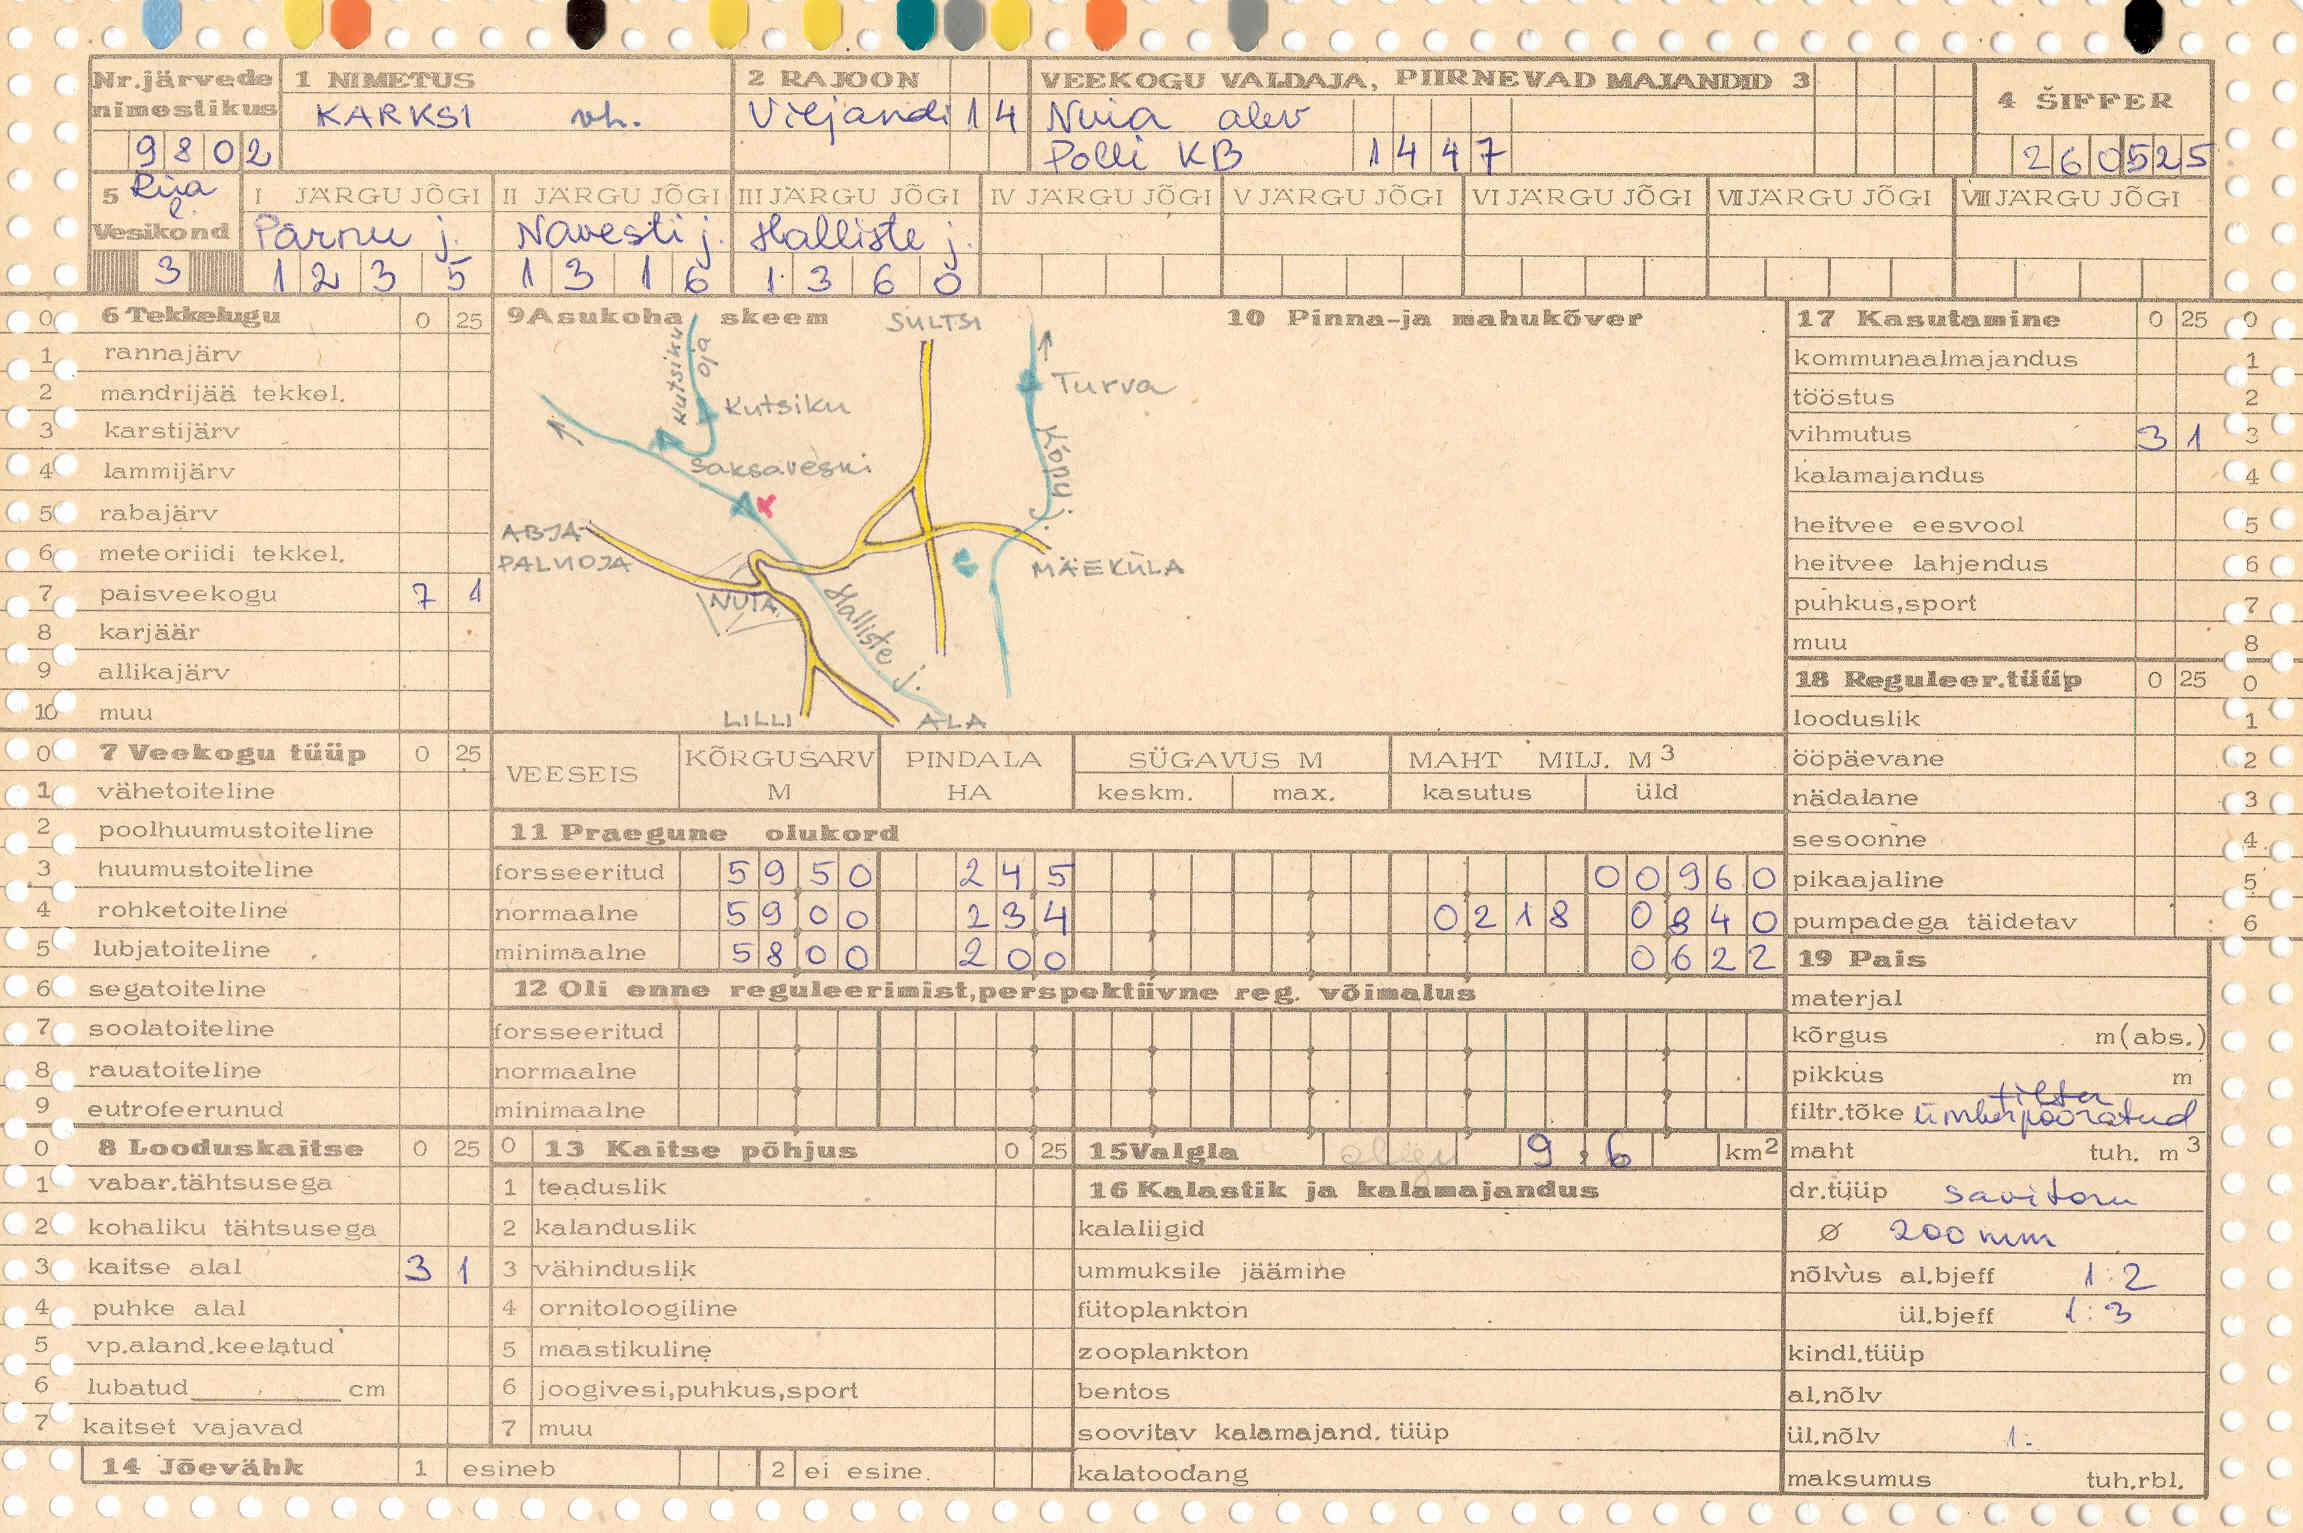 Nr.järvede nimestikus
9802
1 NIMETUS
KARKSI vh.
2 RAJOON
Viljandi 14
VEEKOGU VALDAJA, PIIRNEVAD MAJANDID 3
Nuia alev
Polli KB 1447
4 ŠIFFER
260525
5 Riia l.
Vesikond
3
I JÄRGU JÕGI
Pärnu j.
1235
II JÄRGU JÕGI
Navesti j.
1316
III JÄRGU JÕGI
Halliste j.
1360
IV JÄRGU JÕGI
V JÄRGU JÕGI
VI JÄRGU JÕGI
VII JÄRGU JÕGI
VIII JÄRGU JÕGI
0 6 Tekkelugu 0 25
1 rannajärv
2 mandrijää tekkel.
3 karstijärv
4 lammijärv
5 rabajärv
6 meteoriidi tekkel.
7 paisveekogu 7 1
8 karjäär
9 allikajärv
10 muu
0 7 Veekogu tüüp 0 25
1 vähetoiteline
2 poolhuumustoiteline
3 huumustoiteline
4 rohketoiteline
5 lubjatoiteline
6 segatoiteline
7 soolatoiteline
8 rauatoiteline
9 eutrofeerunud
0 8 Looduskaitse 0 25
1 vabar.tähtsusega
2 kohaliku tähtsusega
3 kaitse alal 3 1
4 puhke alal
5 vp.aland.keelatud
6 lubatud cm
7 kaitset vajavad
14 Jõevähk 1 esineb 2 ei esine.
9 Asukoha skeem
SULTSI
Kutsiku oja
Kutsiku
Turva
Saksaveski
Kõpu j.
ABJA-
PALUOJA
MÄEKÜLA
NUIA
Halliste j.
LILLI
ALA
10 Pinna-ja mahukõver
VEESEIS
KÕRGUSARV M
PINDALA HA
SÜGAVUS M
keskm. max.
MAHT MILJ. M3
kasutus üld
11 Praegune olukord
forsseeritud 5950 245 00960
normaalne 5900 234 0218 0840
minimaalne 5800 200 0622
12 Oli enne reguleerimist,perspektiivne reg. võimalus
forsseeritud
normaalne
minimaalne
0 13 Kaitse põhjus 0 25
1 teaduslik
2 kalanduslik
3 vähinduslik
4 ornitoloogiline
5 maastikuline
6 joogivesi,puhkus,sport
7 muu
15 Valgla 9,6 km2
16 Kalastik ja kalamajandus
kalaliigid
ummuksile jäämine
fütoplankton
zooplankton
bentos
soovitav kalamajand. tüüp
kalatoodang
17 Kasutamine 0 25 0
kommunaalmajandus 1
tööstus 2
vihmutus 3 1 3
kalamajandus 4
heitvee eesvool 5
heitvee lahjendus 6
puhkus,sport 7
muu 8
18 Reguleer.tüüp 0 25 0
looduslik 1
ööpäevane 2
nädalane 3
sesoonne 4
pikaajaline 5
pumpadega täidetav 6
19 Pais
materjal
kõrgus m(abs.)
pikkus m
filtr.tõke ümberpööratud filter
maht tuh. m3
dr.tüüp savitoru
Ø 200 mm
nõlvus al.bjeff 1:2
ül.bjeff 1:3
kindl.tüüp
al.nõlv
ül.nõlv 1:
maksumus tuh.rbl.